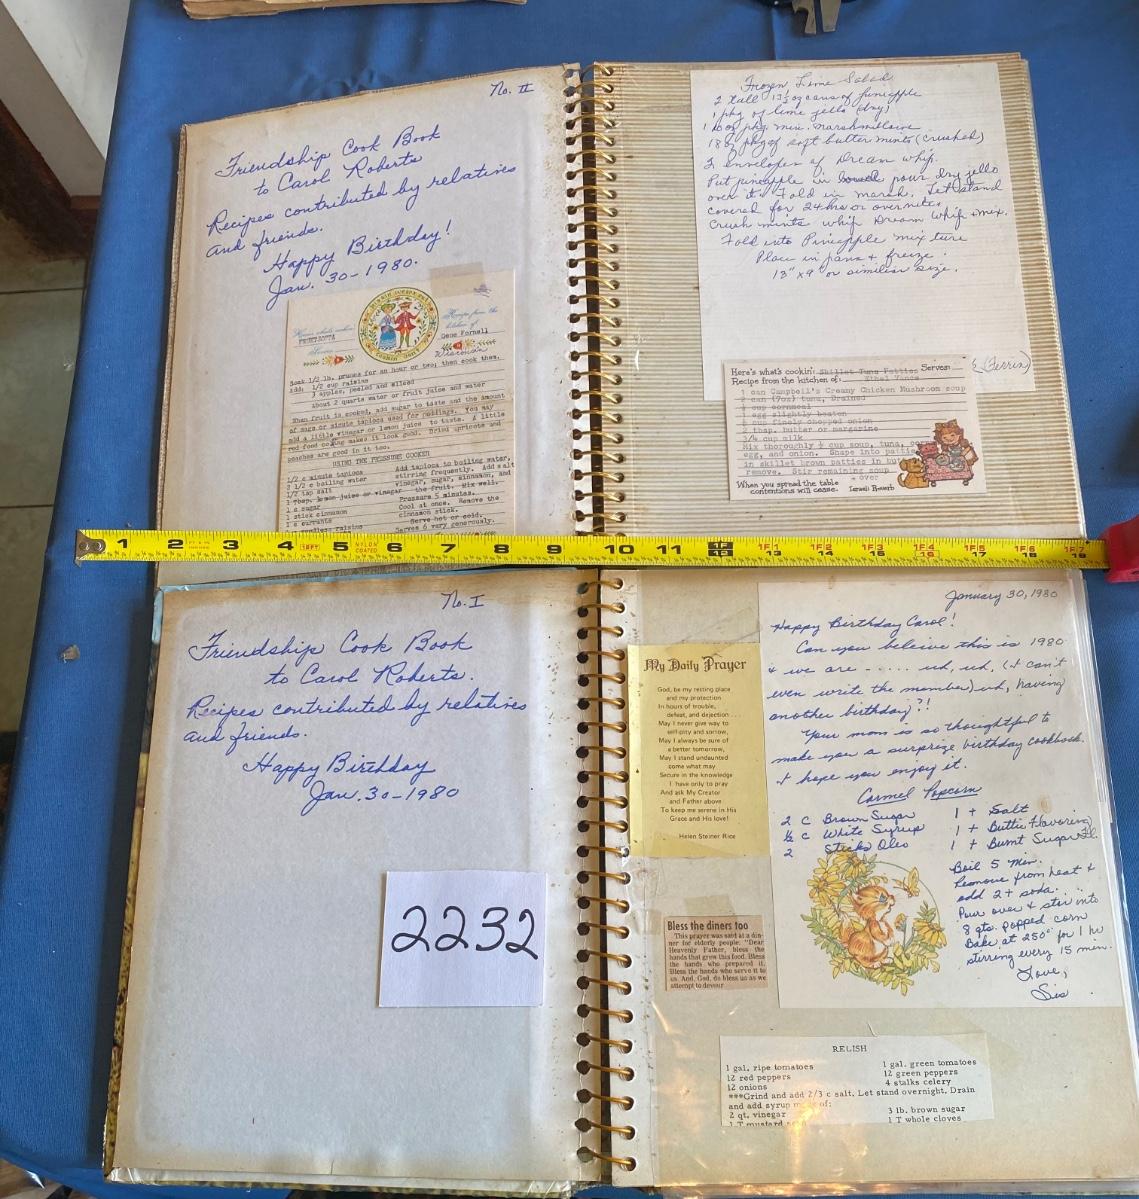 No. II
Friendship Cook Book
to Carol Roberts
Recipes contributed by relatives
and friends.
Happy Birthday!
Jan. 30-1980.
Here's what's cookin'
Recipe from the
kitchen of
Gene Fornell
Wisconsin
Soak 1/2 lb. prunes for an hour or two; then cook them.
Add: 1/2 cup raisins
3 apples, peeled and sliced
about 2 quarts water or fruit juice and water
When fruit is cooked, add sugar to taste and the amount
of sago or minute tapioca used for puddings. You may
add a little vinegar or lemon juice to taste. A little
red food coloring makes it look good. Dried apricots and
peaches are good in it too.
USING THE PRESSURE COOKER
1/2 c minute tapioca
2 1/2 c boiling water
1/2 tsp salt
1 Tbsp. lemon juice or vinegar
1 c sugar
1 stick cinnamon
1 c currants
seedless raisins
Add tapioca to boiling water,
stirring frequently. Add salt
vinegar, sugar, cinnamon, and
the fruit. Mix well.
Pressure 5 minutes.
Cool at once. Remove the
cinnamon stick.
Serve hot or cold.
Serves 6 very generously.
Frozen Lime Salad
2 tall 13½ oz cans of pineapple
1 pkg of lime jello (dry)
1 10 oz pkg. min. marshmallows
1 8 oz pkg of soft butter mints (crushed)
2 envelopes of Dream Whip.
Put pineapple in bowl pour dry jello
over it. Fold in marsh. Let stand
covered for 24 hrs or overnite.
Crush mints whip Dream Whip & mix.
Fold into Pineapple mixture
Place in pans & freeze.
13" x 9" or similiar size.
(Ferrin)
Here's what's cookin': Skillet Tuna Patties Serves:
Recipe from the kitchen of: Ethel Vance
1 can Campbell's Creamy Chicken Mushroom soup
can (7oz) tuna, Drained
cup cornmeal
egg slightly beaten
cup finely chopped onion
2 tbsp. butter or margarine
3/4 cup milk
Mix thoroughly ½ cup soup, tuna,
egg, and onion. Shape into patties
in skillet brown patties in
remove. Stir remaining soup
over
When you spread the table
contentions will cease.
1 2 3 4 5 6 7 8 9 10 11 1F 12 1F 13 1F 14 1F 15 1F 16 1F 17 1F 18 1F 19
NYLON
COATED
No. I
Friendship Cook Book
to Carol Roberts.
Recipes contributed by relatives
and friends.
Happy Birthday
Jan. 30-1980
2232
My Daily Prayer
God, be my resting place
and my protection
In hours of trouble,
defeat, and dejection...
May I never give way to
self-pity and sorrow,
May I always be sure of
a better tomorrow,
May I stand undaunted
come what may
Secure in the knowledge
I have only to pray
And ask My Creator
and Father above
To keep me serene in His
Grace and His love!
Helen Steiner Rice
Bless the diners too
This prayer was said at a din-
ner for elderly people: "Dear
Heavenly Father, bless the
hands that grew this food. Bless
the hands who prepared it.
Bless the hands who serve it to
us. And, God, do bless us as we
attempt to devour
January 30, 1980
Happy Birthday Carol!
Can you beleive this is 1980
& we are ..... uh, uh, (I can't
even write the number) uh, having
another birthday?!
Your mom is so thoughtful to
make you a surprize birthday cookbook.
I hope you enjoy it.
Carmel Popcorn
2 C Brown Sugar
½ C White Syrup
2 Sticks Oleo
1 t Salt
1 t Butter Flavoring
1 t Burnt Sugar Fl.
Boil 5 min.
Remove from heat &
add 2 t soda.
Pour over & stir into
8 qts. popped corn
Bake at 250° for 1 hr
stirring every 15 min.
Love,
Sis
RELISH
1 gal. ripe tomatoes
12 red peppers
12 onions
1 gal. green tomatoes
12 green peppers
4 stalks celery
***Grind and add 2/3 c salt. Let stand overnight. Drain
and add syrup made of:
2 qt. vinegar
1 T mustard
3 lb. brown sugar
1 T whole cloves